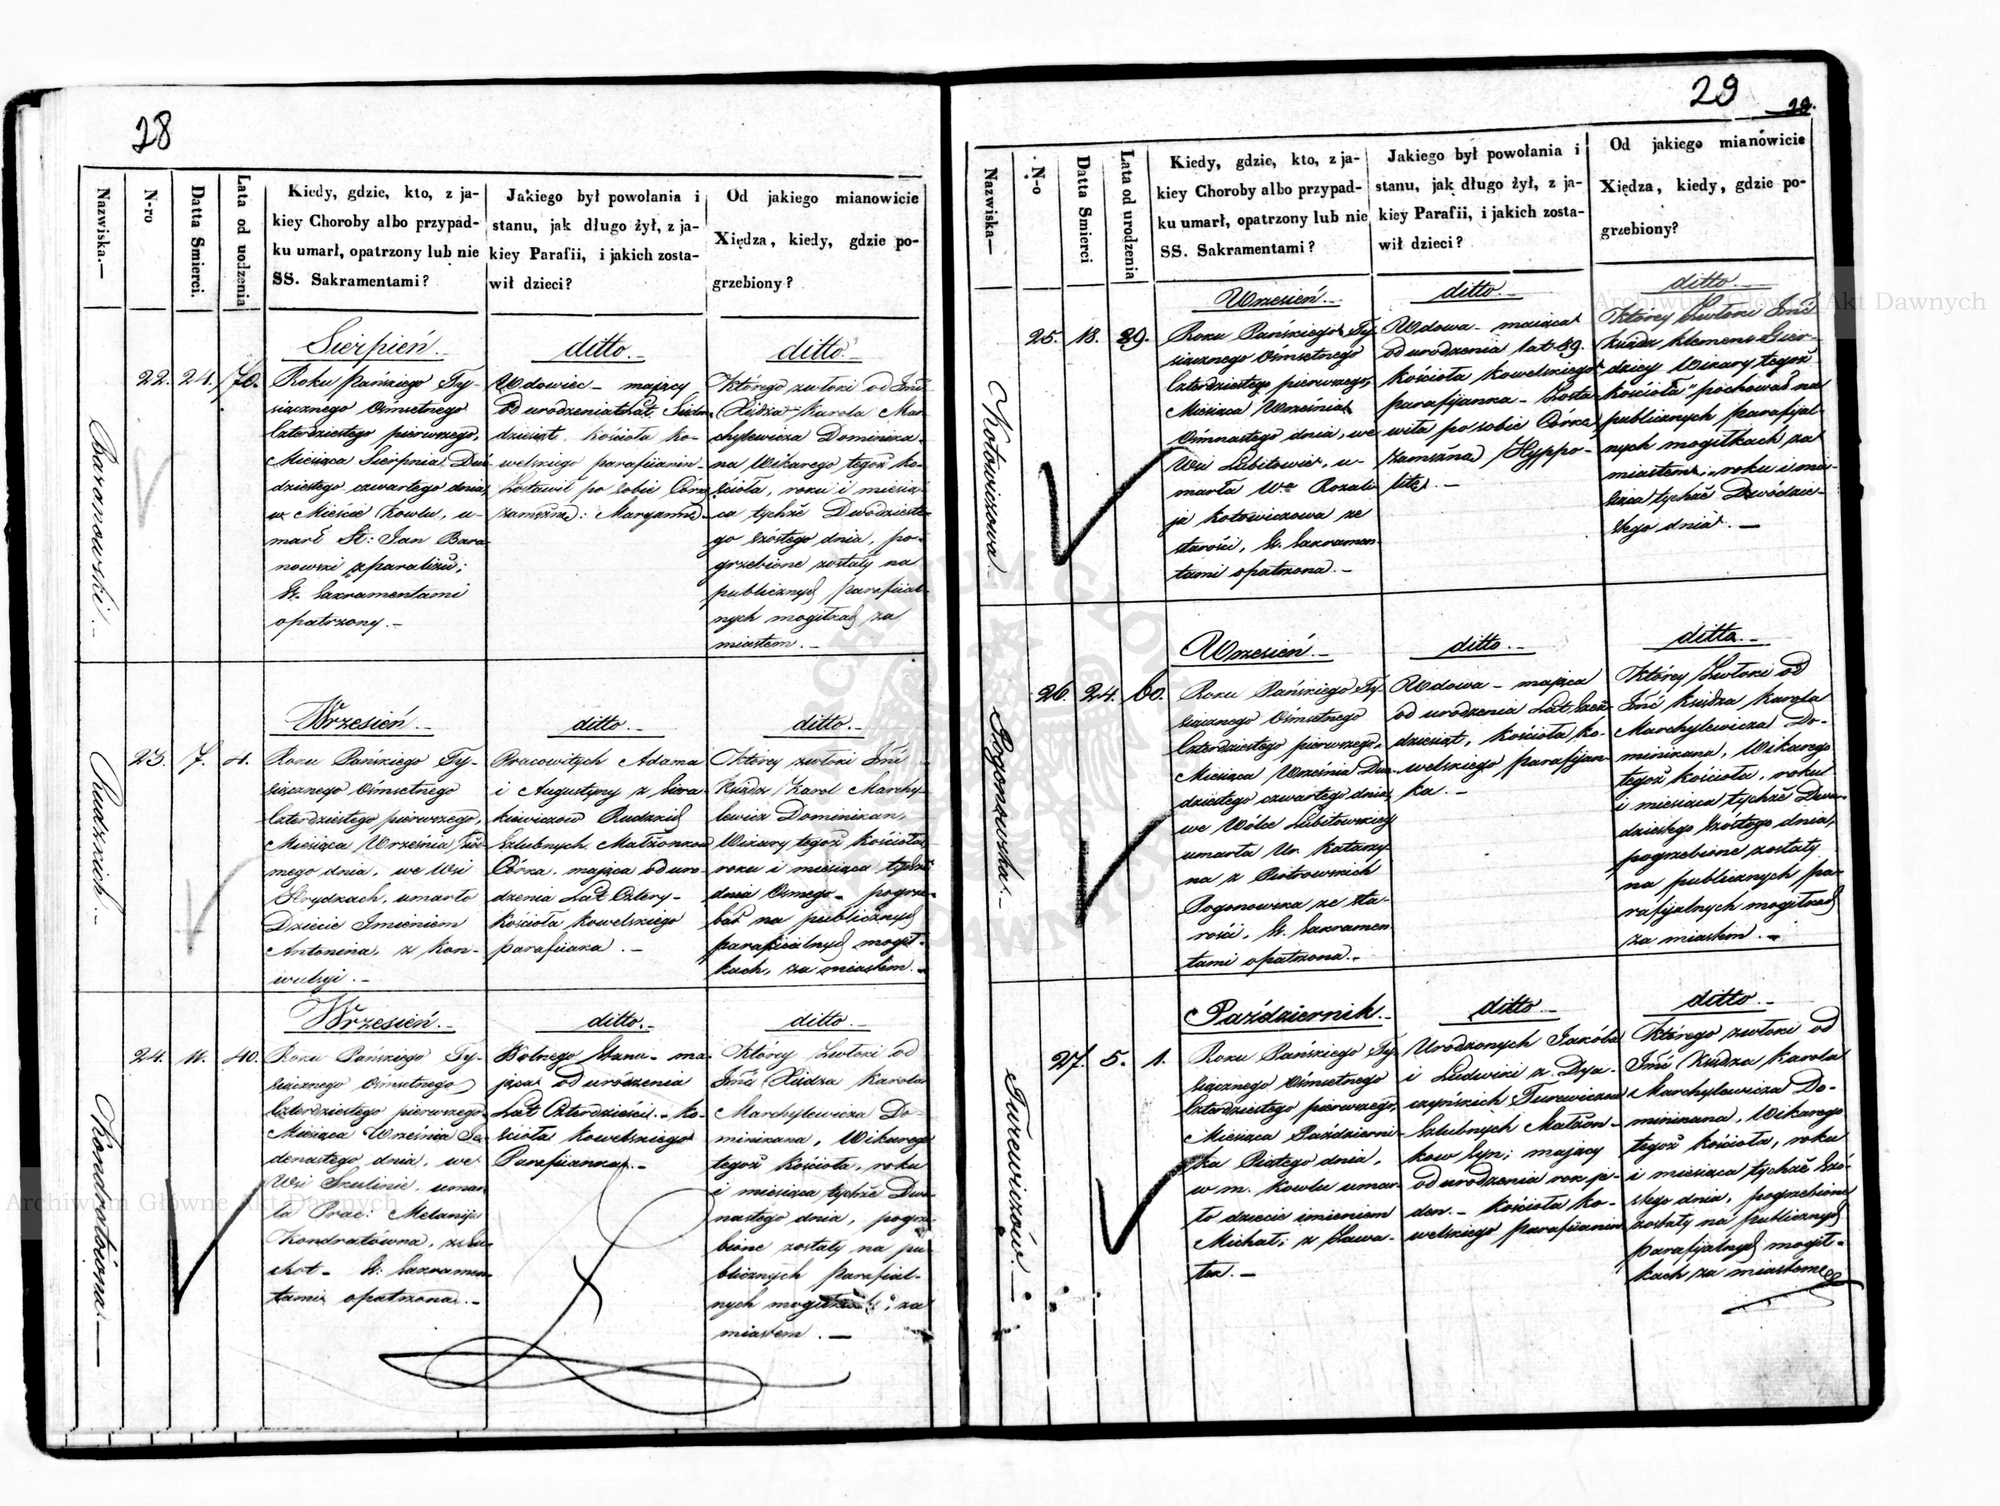 28
Nazwiska.—
N-ro
Datta Smierci.
Lata od uodzenia
Kiedy, gdzie, kto, z ja-
kiey Choroby albo przypad-
ku umarł, opatrzony lub nie
SS. Sakramentami?
Jakiego był powołania i
stanu, jak długo żył, z ja-
kiey Parafii, i jakich zosta-
wił dzieci?
Od jakiego mianowicie
Xiędza, kiedy, gdzie po-
grzebiony?
Baranowski.-
22. 24. 70.
Sierpień.-
Roku Pańskiego Ty-
siącznego Ośmsetnego
Czterdziestego pierwszego,
Miesiąca Sierpnia Dwu-
dziestego czwartego dnia,
w Mieście Kowlu, u-
marł St: Jan Bara-
nowski z paraliżu;
St. Sakramentami
opatrzony.-
ditto.
Wdowiec - mający
od urodzenia Lat Siedm-
dziesiąt, Kościoła Ko-
welskiego parafijanin-
Zostawił po sobie Córkę
zamężną: Maryannę.-
ditto.-
Którego zwłoki od Jmć
Xiędza Karola Mar-
chylewicza Dominika-
na Wikarego tegoż Ko-
ścioła, roku i miesią-
ca tychże Dwódzieste-
go szóstego dnia, po-
grzebione zostały na
publicznych parafial-
nych mogiłkach za
miastem.-
Rudzkich.-
23. 7. 4.
Wrzesień.-
Roku Pańskiego Ty-
siącznego Ośmsetnego
Czterdziestego pierwszego,
Miesiąca Września Siód-
mego dnia, we Wsi
umarło
Dziecie Imieniem
Antonina, z kon-
wulsyi.-
ditto.-
Pracowitych Adama
i Augustyny z
Rudzkich
Szlubnych Małżonków
Córka, mająca od uro-
dzenia Lat Cztery-
Kościoła Kowelskiego
parafianka.-
ditto.-
Którey zwłoki Jmć
Xiądz Karol Marchy-
lewicz Dominikan,
Wikary tegoż Kościoła,
roku i miesiąca tychże
dnia Osmego - pogrze-
bał na publicznych
parafialnych mogił-
kach, za miastem.-
Kondratówna.-
24. 11. 40.
Wrzesień.-
Roku Pańskiego Ty-
siącznego Ośmsetnego
Czterdziestego pierwszego
Miesiąca Września Je-
denastego dnia, we
Wsi umar-
ła Prac: Melanija
Kondratówna, z su-
chot - St: Sakramen-
tami opatrzona.-
ditto.-
Wolnego Stanu - ma-
jąca od urodzenia
Lat Czterdzieści.- Ko-
ścioła Kowelskiego
Parafianka.-
ditto.-
Którey Zwłoki od
Jmć Xiędza Karola
Marchylewicza Do-
minikana, Wikarego
tegoż Kościoła, roku
i miesiąca tychże Dwu-
nastego dnia, pogrze-
bione zostały na pu-
blicznych parafial-
nych mogiłkach za
miastem.-
29
29.
Nazwiska—
N-o
Datta Smierci
Lata od urodzenia
Kiedy, gdzie, kto, z ja-
kiey Choroby albo przypad-
ku umarł, opatrzony lub nie
SS. Sakramentami?
Jakiego był powołania i
stanu, jak długo żył, z ja-
kiey Parafii, i jakich zosta-
wił dzieci?
Od jakiego mianowicie
Xiędza, kiedy, gdzie po-
grzebiony?
Kotowiczowa.-
25. 18. 89.
Wrzesień.-
Roku Pańskiego Ty-
siącznego Ośmsetnego
Czterdziestego pierwszego,
Miesiąca Września
Ośmnastego dnia, we
Wsi Lubitowie, u-
marła Wa Rozali-
ja Kotowiczowa ze
starości, St. Sakramen-
tami opatrzona.-
ditto.-
Wdowa - mająca
od urodzenia lat 89.
Kościoła Kowelskiego
parafijanka - Zosta-
wiła po sobie Córkę
zamężną Hyppo-
litę.-
ditto.-
Którey Zwłoki Jmć
Xiądz Klemens
Wikary tegoż
Kościoła pochował na
publicznych parafijal-
nych mogiłkach za
miastem, roku i mie-
siąca tychże Dwódzie-
stego dnia.-
Pogonowska.-
26. 24. 60.
Wrzesień.-
Roku Pańskiego Ty-
siącznego Ośmsetnego
Czterdziestego pierwszego,
Miesiąca Września Dwu-
dziestego czwartego dnia,
we Wólce Lubitowskiey
umarła Ur. Katarzy-
na z Piotrowskich
Pogonowska ze sta-
rości, St. Sakramen-
tami opatrzona.-
ditto.-
Wdowa - mająca
od urodzenia Lat Sześć-
dziesiąt, Kościoła Ko-
welskiego parafijan-
ka.-
ditto.-
Którey Zwłoki od
Jmć Xiędza Karola
Marchylewicza Do-
minikana, Wikarego
tegoż Kościoła, roku
i miesiąca tychże Dwu-
dziestego Szóstego dnia,
pogrzebione zostały
na publicznych pa-
rafijalnych mogiłkach
za miastem.-
Turewiczów.-
27. 5. 1.
Październik.-
Roku Pańskiego Ty-
siącznego Ośmsetnego
Czterdziestego pierwszego,
Miesiąca Październi-
ka Piątego dnia,
w m. Kowlu umar-
ło dziecie imieniem
Michał; z
ditto.-
Urodzonych Jakóba
i Ludwiki z
Turewiczów
Szlubnych Małżon-
ków Syn; mający
od urodzenia rok je-
den.- Kościoła Ko-
welskiego parafianin
ditto.-
Którego zwłoki od
Jmć Xiędza Karola
Marchylewicza Do-
minikana, Wikarego
tegoż Kościoła, roku
i miesiąca tychże Szó-
stego dnia, pogrzebione
zostały na publicznych
parafijalnych mogił-
kach za miastem
Archiwum Główne Akt Dawnych
Archiwum Główne Akt Dawnych